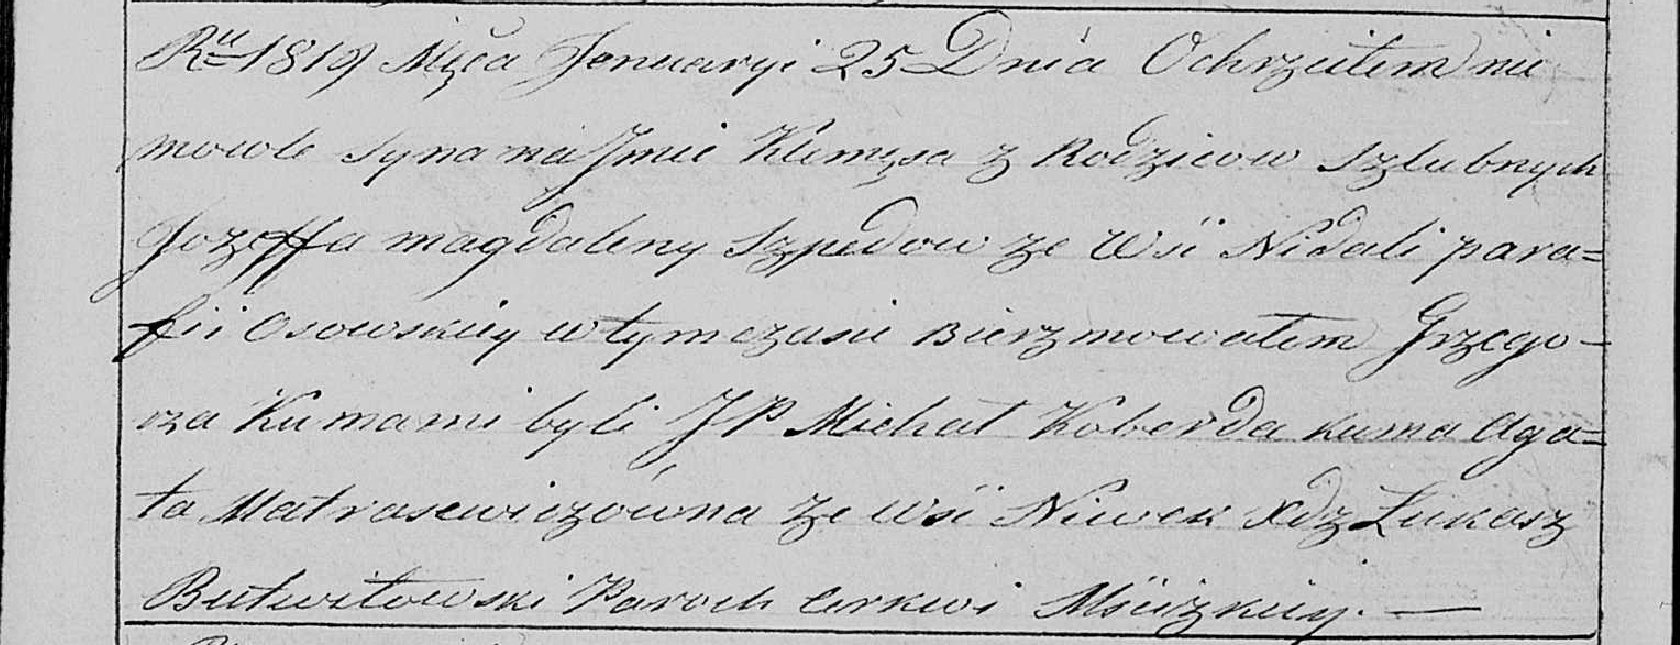 Ru 1819 Męca Jenuaryi 25 Dnia Ochrzciłem nie
mowle Syna na Jmie Klemęsa z Rodzicow Szlubnych
Jozeffa Magdaleny Szpedow ze Wsi Nidali para=
fii Osowskiey w tymczasie Bierzmowałem Grzego-
rza Kumami byli JP Michał Koberda kuma Aga=
ta Matrasewiczówna ze wsi Niwek Xdz Łukasz
Butwiłowski Paroch Cerkwi Mściżkiey. —